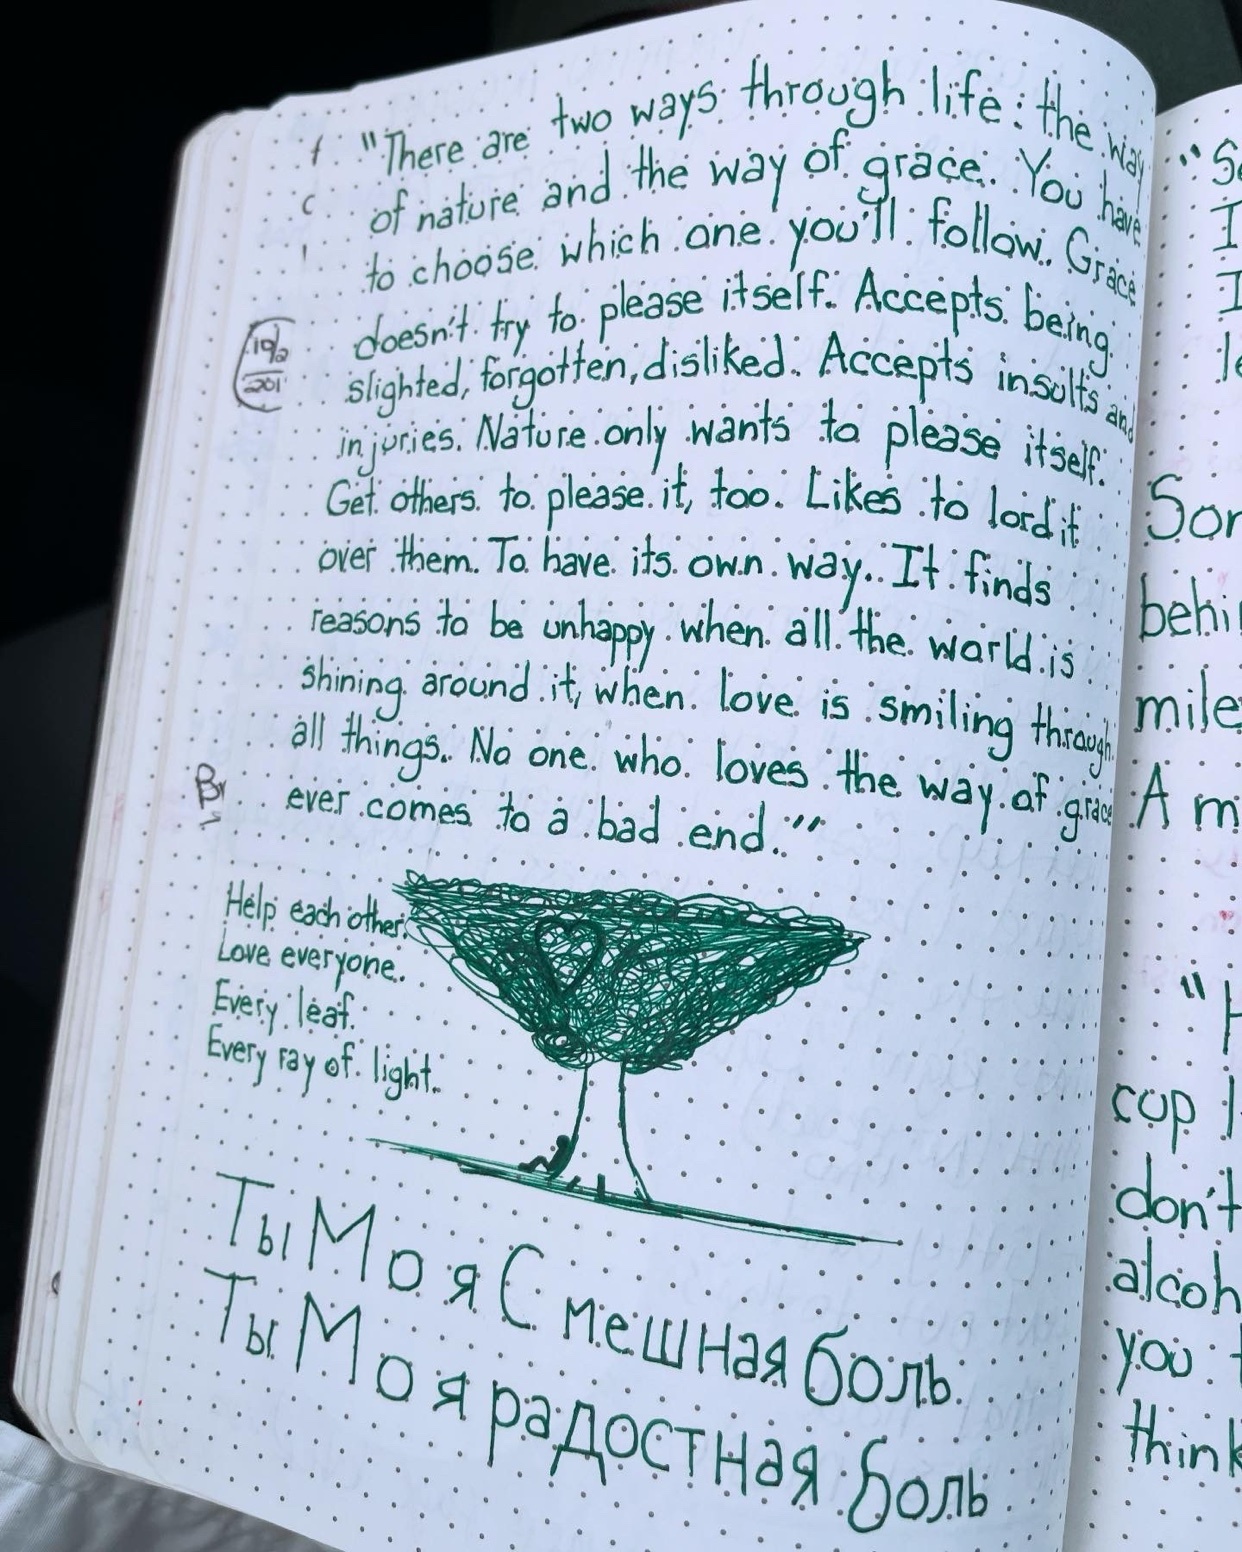 "There are two ways through life: the way
of nature and the way of grace. You have
to choose which one you'll follow. Grace
doesn't try to please itself. Accepts being
slighted, forgotten, disliked. Accepts insults and
injuries. Nature only wants to please itself.
Get others to please it, too. Likes to lord it
over them. To have its own way. It finds
reasons to be unhappy when all the world is
shining around it, when love is smiling through
all things. No one who loves the way of grace
ever comes to a bad end."
Help each other.
Love everyone.
Every leaf.
Every ray of light.
Ты Моя Смешная боль
Ты Моя радостная боль
"S
I
I
Sor
behi
mile
A m
"H
cup
don't
alcoh
you
think